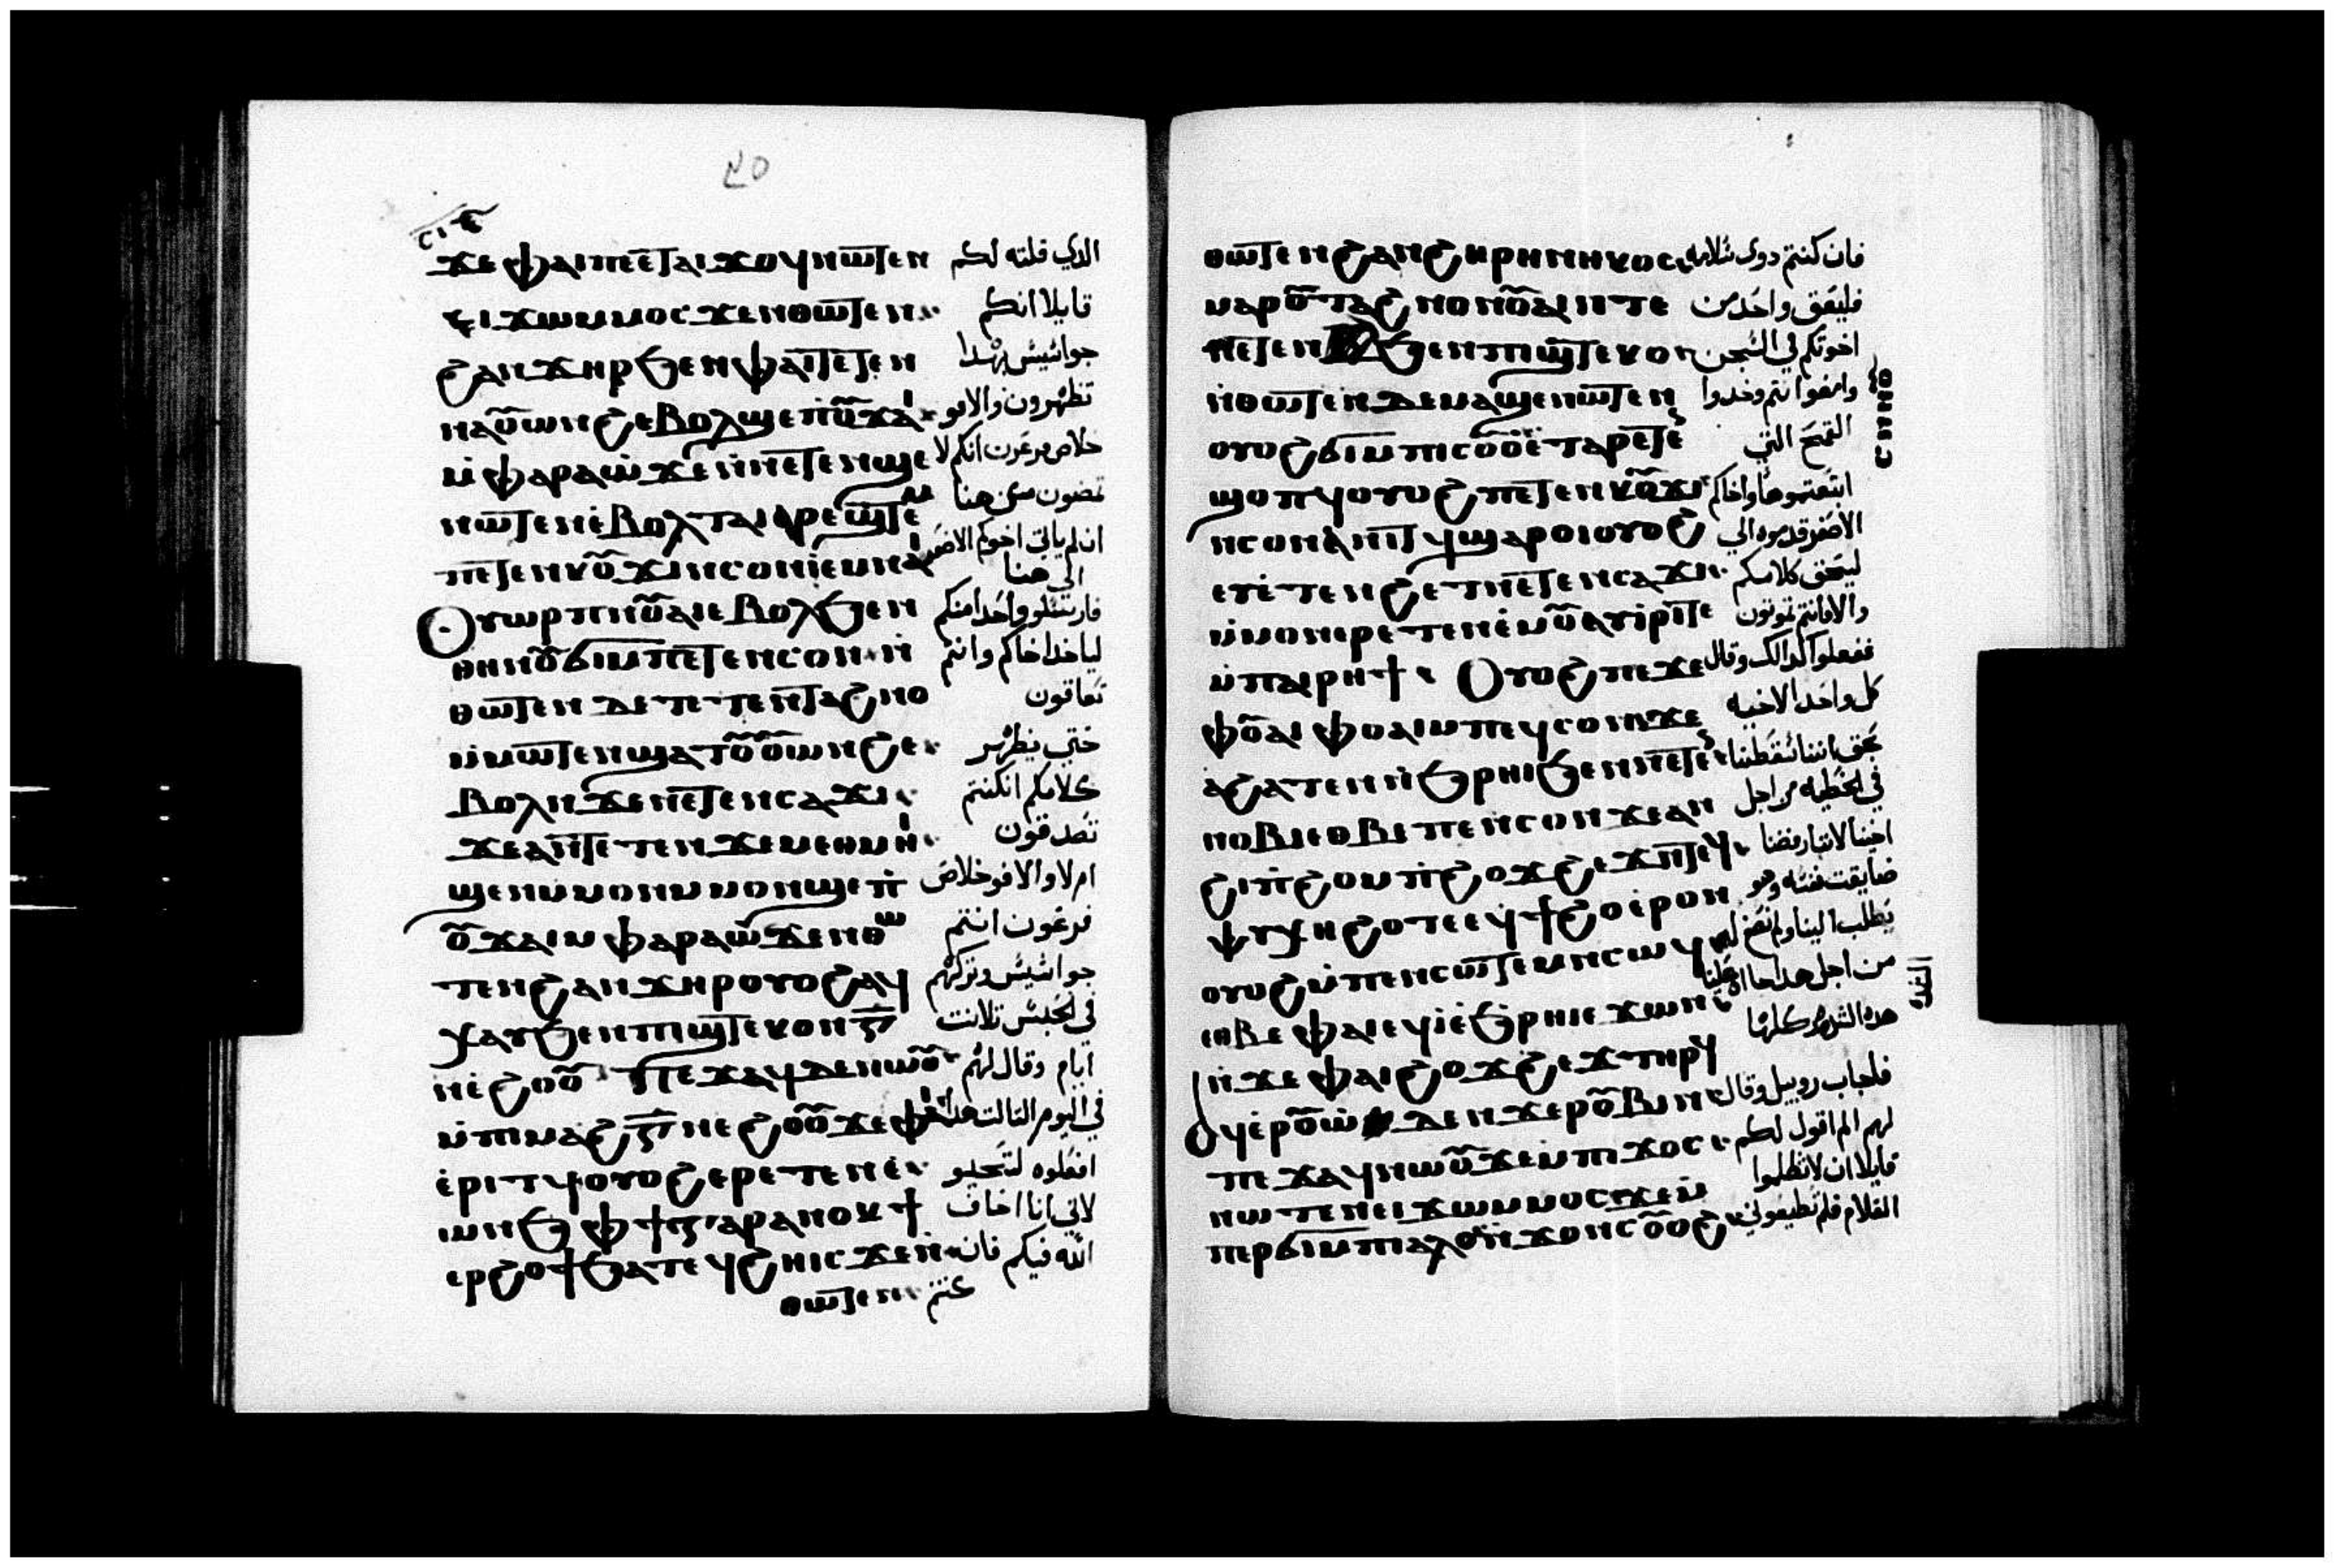 ϫⲉ ⲫⲁⲓ ⲡⲉⲧⲁⲓϫⲟϥ ⲛⲱⲧⲉⲛ الدي قلته لكم
ⲉⲓϫⲱ ⲙⲙⲟⲥ ϫⲉ ⲛⲑⲱⲧⲉⲛ قايلا انكم
ϩⲁⲛϫⲏⲣ ϧⲉⲛ ⲫⲁⲓ ⲧⲉⲧⲉⲛ جواسيس بهدا
ⲛⲁⲟⲩⲱⲛϩ ⲉⲃⲟⲗ ϣⲉ ⲡⲟⲩϫⲁⲓ تظهرون والا فو
ⲙⲫⲁⲣⲁⲱ ϫⲉ ⲛⲛⲉⲧⲉⲛϣⲉ خلاص فرعون انكم لا
ⲛⲱⲧⲉⲛ ⲉⲃⲟⲗ ⲧⲁⲓ ⲁⲣⲉϣⲧⲉⲙ تمضون من هنا
ⲡⲉⲧⲉⲛⲕⲟⲩϫⲓ ⲛⲥⲟⲛ ⲓ ⲉⲙⲛⲁⲓ ان لم ياتي اخوكم الاصغر
الي هنا
ⲟⲩⲱⲣⲡ ⲛⲟⲩⲁⲓ ⲉⲃⲟⲗ ϧⲉⲛ فارسلو واحدا منكم
ⲑⲏⲛⲟⲩ ϭⲓ ⲙⲡⲉⲧⲉⲛⲥⲟⲛ ⲛ لياخد اخاكم وانتم
ⲑⲱⲧⲉⲛ ⲇⲉ ⲧⲉⲧⲉⲛⲧⲁϩⲛⲟ تعاقون
ⲙⲙⲱⲧⲉⲛ ϣⲁⲧⲟⲩⲟⲩⲱⲛϩ ⲉ حتي يظهر
ⲃⲟⲗ ⲛϫⲉ ⲛⲉⲧⲉⲛⲥⲁϫⲓ كلامكم انكنتم
ϫⲉ ⲁⲛ ⲧⲉⲧⲉⲛϫⲉ ⲙⲉⲑⲙⲏⲓ تصدقون
ϣⲉⲛ ⲙⲙⲟⲛ ⲙⲙⲟⲛ ϣⲉ ⲡ ام لا والا فو خلاص
ⲟⲩϫⲁⲓ ⲙⲫⲁⲣⲁⲱ ϫⲉ ⲛⲑⲱ فرعون انتم
ⲧⲉⲛ ϩⲁⲛϫⲏⲣ ⲟⲩⲟϩ ⲁϥ جواسيس وتركهم
ⲭⲁⲩ ϧⲉⲛ ⲡⲓϣⲧⲉⲕⲟ ⲛⲅ في الحبس تلاتت
ⲛⲉϩⲟⲟⲩ ⲡⲉϫⲁϥ ⲇⲉ ⲛⲱⲟⲩ ايام وقال لهم
ⲙⲡⲓⲙⲁϩⲅ ⲛⲉϩⲟⲟⲩ ϫⲉ ⲫⲁⲓ في اليوم التالت هدا
ⲁⲣⲓⲧϥ ⲟⲩⲟϩ ⲉⲣⲉⲧⲉⲛⲉ افعلوه لتحيو
ⲱⲛϧ ⲫϯ ⲅⲁⲣ ⲁⲛⲟⲕ ϯ لاني انا اخاف
ⲉⲣϩⲟϯ ϧⲁⲧⲉϥϩⲏ ⲓⲥϫⲉ ⲛ الله فيكم فان
ⲑⲱⲧⲉⲛ كنتم
ⲑⲱⲧⲉⲛ ϩⲁⲛϩⲓⲣⲏⲛⲓⲕⲟⲥ فان كنتم دوي سلامه
ⲙⲁⲣⲟⲩⲧⲁϩⲛⲟ ⲛⲟⲩⲁⲓ ⲛⲧⲉ فليعق واحد من
ⲛⲉⲧⲉⲛ ϧⲉⲛ ⲡⲓϣⲧⲉⲕⲟ اخوتكم في السجن
ⲛⲑⲱⲧⲉⲛ ⲇⲉ ⲙⲁϣⲉⲛⲱⲧⲉⲛ وامضوا انتم وخدوا
ⲟⲩⲟϩ ϭⲓ ⲙⲡⲓⲥⲟⲩⲟ ⲉⲧⲁⲣⲉⲧⲉⲛ القمح التي
ϣⲟⲡϥ ⲟⲩⲟϩ ⲡⲉⲧⲉⲛⲕⲟⲩϫⲓ ابتعتموها واخاكم
ⲛⲥⲟⲛ ⲁⲛⲓⲧϥ ϣⲁⲣⲟⲓ ⲟⲩⲟϩ الاصغر قدموه الي
ⲉⲧⲉⲧⲉⲛϩⲉⲧ ⲛⲉⲧⲉⲛⲥⲁϫⲓ ليتحق كلامكم
ⲙⲙⲟⲛ ⲉⲣⲉⲧⲉⲛⲉⲙⲟⲩ ⲁⲩⲓⲣⲓ ⲇⲉ والا فانتم تموتون
ⲙⲡⲁⲓⲣⲏϯ ⲟⲩⲟϩ ⲡⲉϫⲉ ففعلوا كدالك وقال
ⲫⲟⲩⲁⲓ ⲫⲟⲩⲁⲓ ⲙⲡⲉϥⲥⲟⲛ ϫⲉ كل واحد لاخيه
ⲁϩⲁ ⲧⲉⲛⲛϧⲣⲏⲓ ϧⲉⲛ بحق اننا سقطنا
ⲛⲟⲃⲓ ⲉⲑⲃⲉ ⲡⲉⲛⲥⲟⲛ ϫⲉ ⲁⲛ في الخطيه من اجل
ϩⲓⲡϩⲟ ⲙⲡϩⲟϫϩⲉϫ ⲛⲧⲉϥ اخينا لاننا رفضنا
ⲯⲩⲭⲏ ϩⲟⲧⲉ ⲉϥϯϩⲟ ⲉⲣⲟⲛ ضايقت نفسه وهو
ⲟⲩⲟϩ ⲙⲡⲉⲛⲥⲱⲧⲉⲙ ⲛⲥⲱϥ يطلب الينا ولم نسمع له
ⲉⲑⲃⲉ ⲫⲁⲓ ⲉϥⲓ ⲉϩⲣⲏⲓ ⲉϫⲱⲛ من اجل هدا جا علينا
ⲛϫⲉ ⲫⲁⲓϩⲟϫϩⲉϫ ⲧⲏⲣϥ هده الشده كلها
ⲁϥⲉⲣⲟⲩⲱ ⲇⲉ ⲛϫⲉ ⲣⲟⲩⲃⲓⲛ فاجاب روبيل وقال
ⲡⲉϫⲁϥ ⲛⲱⲟⲩ ϫⲉ ⲙⲡⲓϫⲟⲥ لهم الم اقول لكم
ⲛⲱⲧⲉⲛ ⲉⲓϫⲱ ⲙⲙⲟⲥ ϫⲉ ⲙ قايلا ان لا تظلموا
ⲡⲉⲣϭⲓ ⲙⲡⲓⲁⲗⲟⲩ ⲛϫⲟⲛⲥ ⲟⲩⲟϩ الغلام فلم تطيعوني